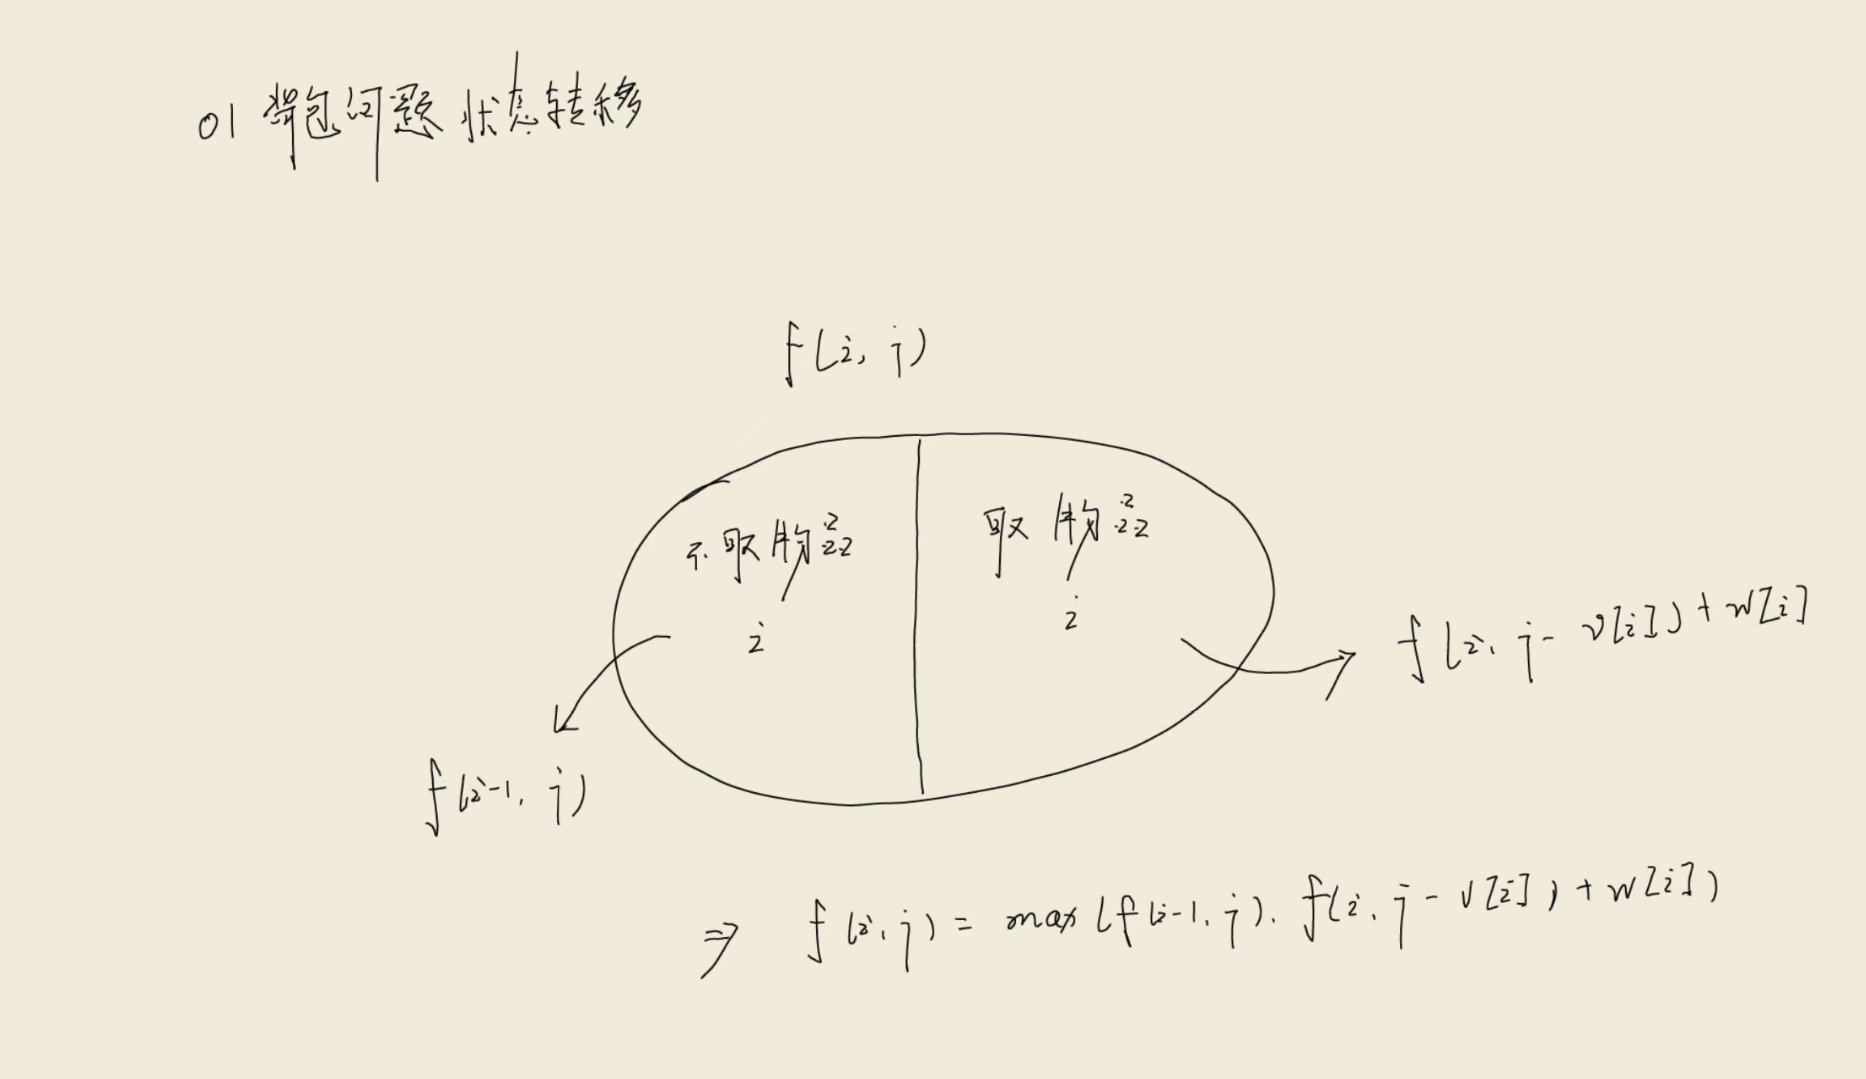 01 背包问题 状态转移
f(i, j)
不取物品
i
取物品
i
f(i, j - v[i]) + w[i]
f(i-1, j)
⇒ f(i, j) = max(f(i-1, j), f(i, j - v[i]) + w[i])